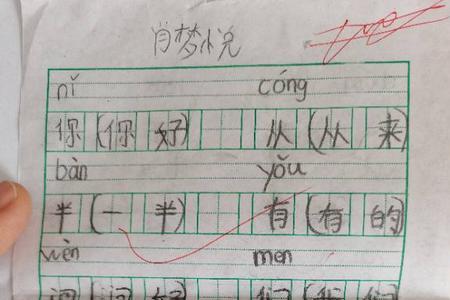 肖梦悦
nǐ cóng
你(你好) 从(从来)
bàn yǒu
半(一半) 有(有的)
wèn men
问(问好) 们(你们)